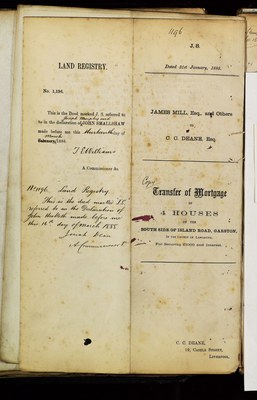 1196
LAND REGISTRY.
No. 1,196.
This is the Deed marked J. S. referred to
in the declaration of JOHN SMALLSHAW
made before me this thirteenth day of
March
1888.
T E Williams
A Commissioner &c.
No 1196. Land Registry.
This is the deed marked J.S.
referred to in the Declaration of
John made before me
this 16th day of March 1888.
A Commissioner &c
J. S.
Dated 21st January, 1888.
JAMES MILL, Esq., and Others
TO
C. C. DEANE, Esq.
Copy
Transfer of Mortgage
OF
4 HOUSES
ON THE
SOUTH SIDE OF ISLAND ROAD, GARSTON,
IN THE COUNTY OF LANCASTER,
For Securing and Interest.
C. C. DEANE,
Castle Street,
Liverpool.